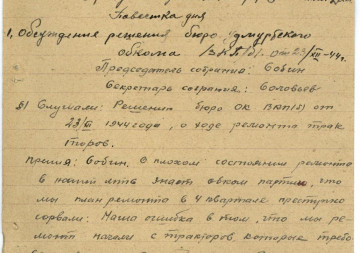 Повестка дня
1, Обсуждения решения бюро Удмурского
обкома ВКП(б) от 23/XII-44г.
Председатель собрания: Собин
Секретарь собрания: Соловьев
Слушали: Решения бюро ОК ВКП(б) от
23/XII 1944 года, о ходе ремонта трак
торов.
Прения: Собин. О плохом состоянии ремонта
в нашей мтс знает обком партии, что
мы план ремонта в 4 квартале преступно
сорвали: Наша ошибка в том, что мы ре-
монт начали с тракторов которые требо